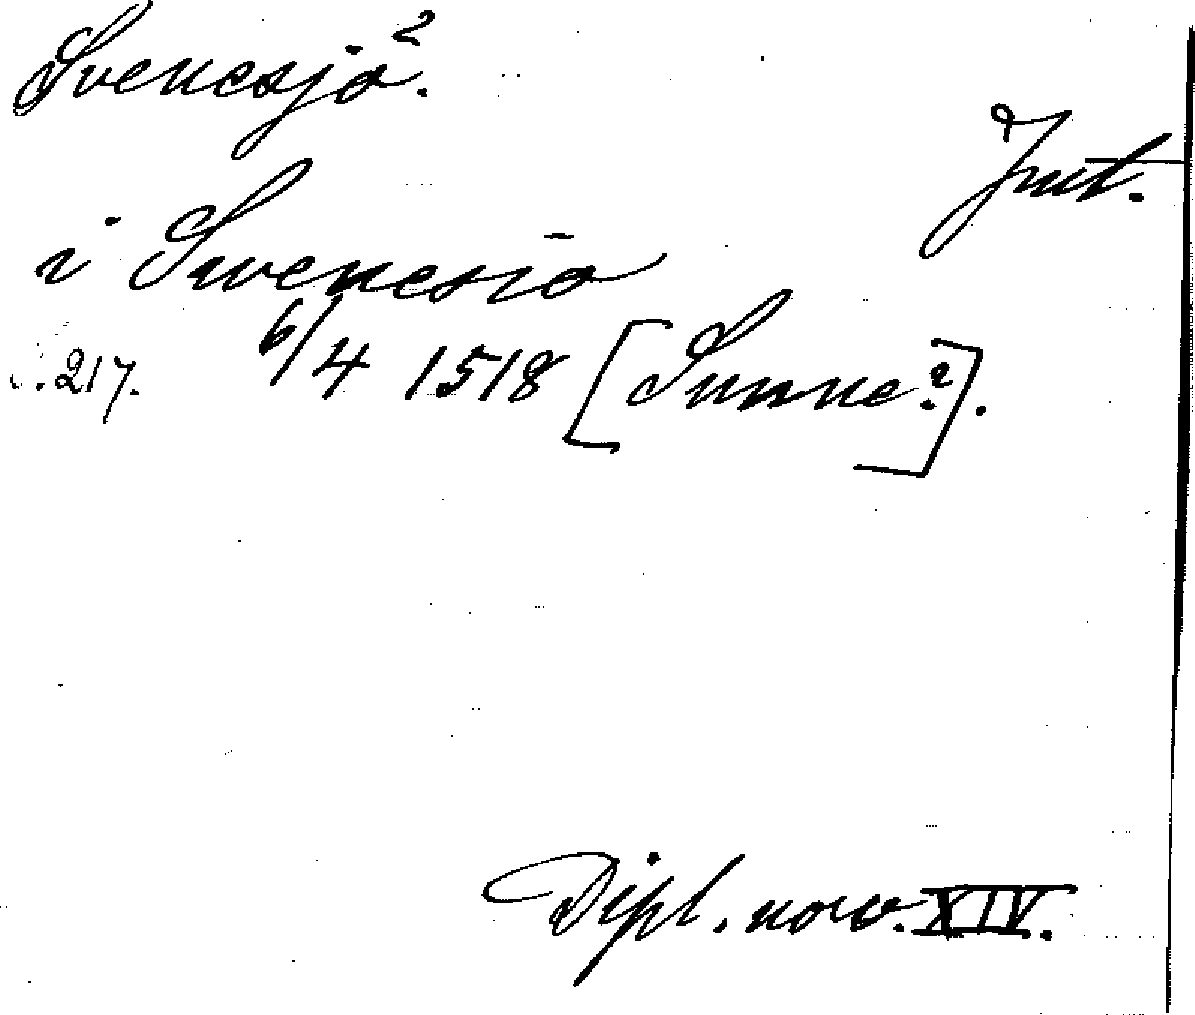 Svenesjö?.
Jmt.
i Swenesiö
s. 217. 6/4 1518 [Sunne?].
Dipl. norv. XIV.